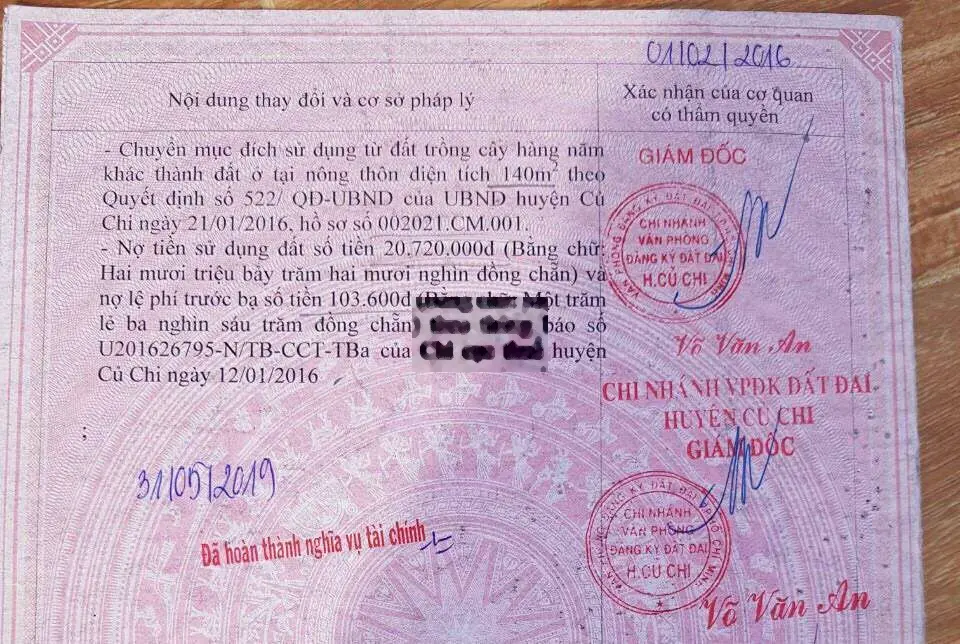 01/02/2016
Nội dung thay đổi và cơ sở pháp lý
Xác nhận của cơ quan
có thẩm quyền
- Chuyển mục đích sử dụng từ đất trồng cây hàng năm
khác thành đất ở tại nông thôn diện tích 140m² theo
Quyết định số 522/ QĐ-UBND của UBND huyện Củ
Chi ngày 21/01/2016, hồ sơ số 002021.CM.001.
- Nợ tiền sử dụng đất số tiền 20.720.000đ (Bằng chữ:
Hai mươi triệu bảy trăm hai mươi nghìn đồng chẵn) và
nợ lệ phí trước bạ số tiền 103.600đ (Bằng chữ: Một trăm
lẻ ba nghìn sáu trăm đồng chẵn) theo thông báo số
U201626795-N/TB-CCT-TBa của Chi cục thuế huyện
Củ Chi ngày 12/01/2016
GIÁM ĐỐC
VĂN PHÒNG ĐĂNG KÝ ĐẤT ĐAI
CHI NHÁNH
VĂN PHÒNG
ĐĂNG KÝ ĐẤT ĐAI
H.CỦ CHI
Võ Văn An
31/05/2019
Đã hoàn thành nghĩa vụ tài chính
CHI NHÁNH VPĐK ĐẤT ĐAI
HUYỆN CỦ CHI
GIÁM ĐỐC
VĂN PHÒNG ĐĂNG KÝ ĐẤT ĐAI TP HỒ CHÍ MINH
CHI NHÁNH
VĂN PHÒNG
ĐĂNG KÝ ĐẤT ĐAI
H.CỦ CHI
Võ Văn An